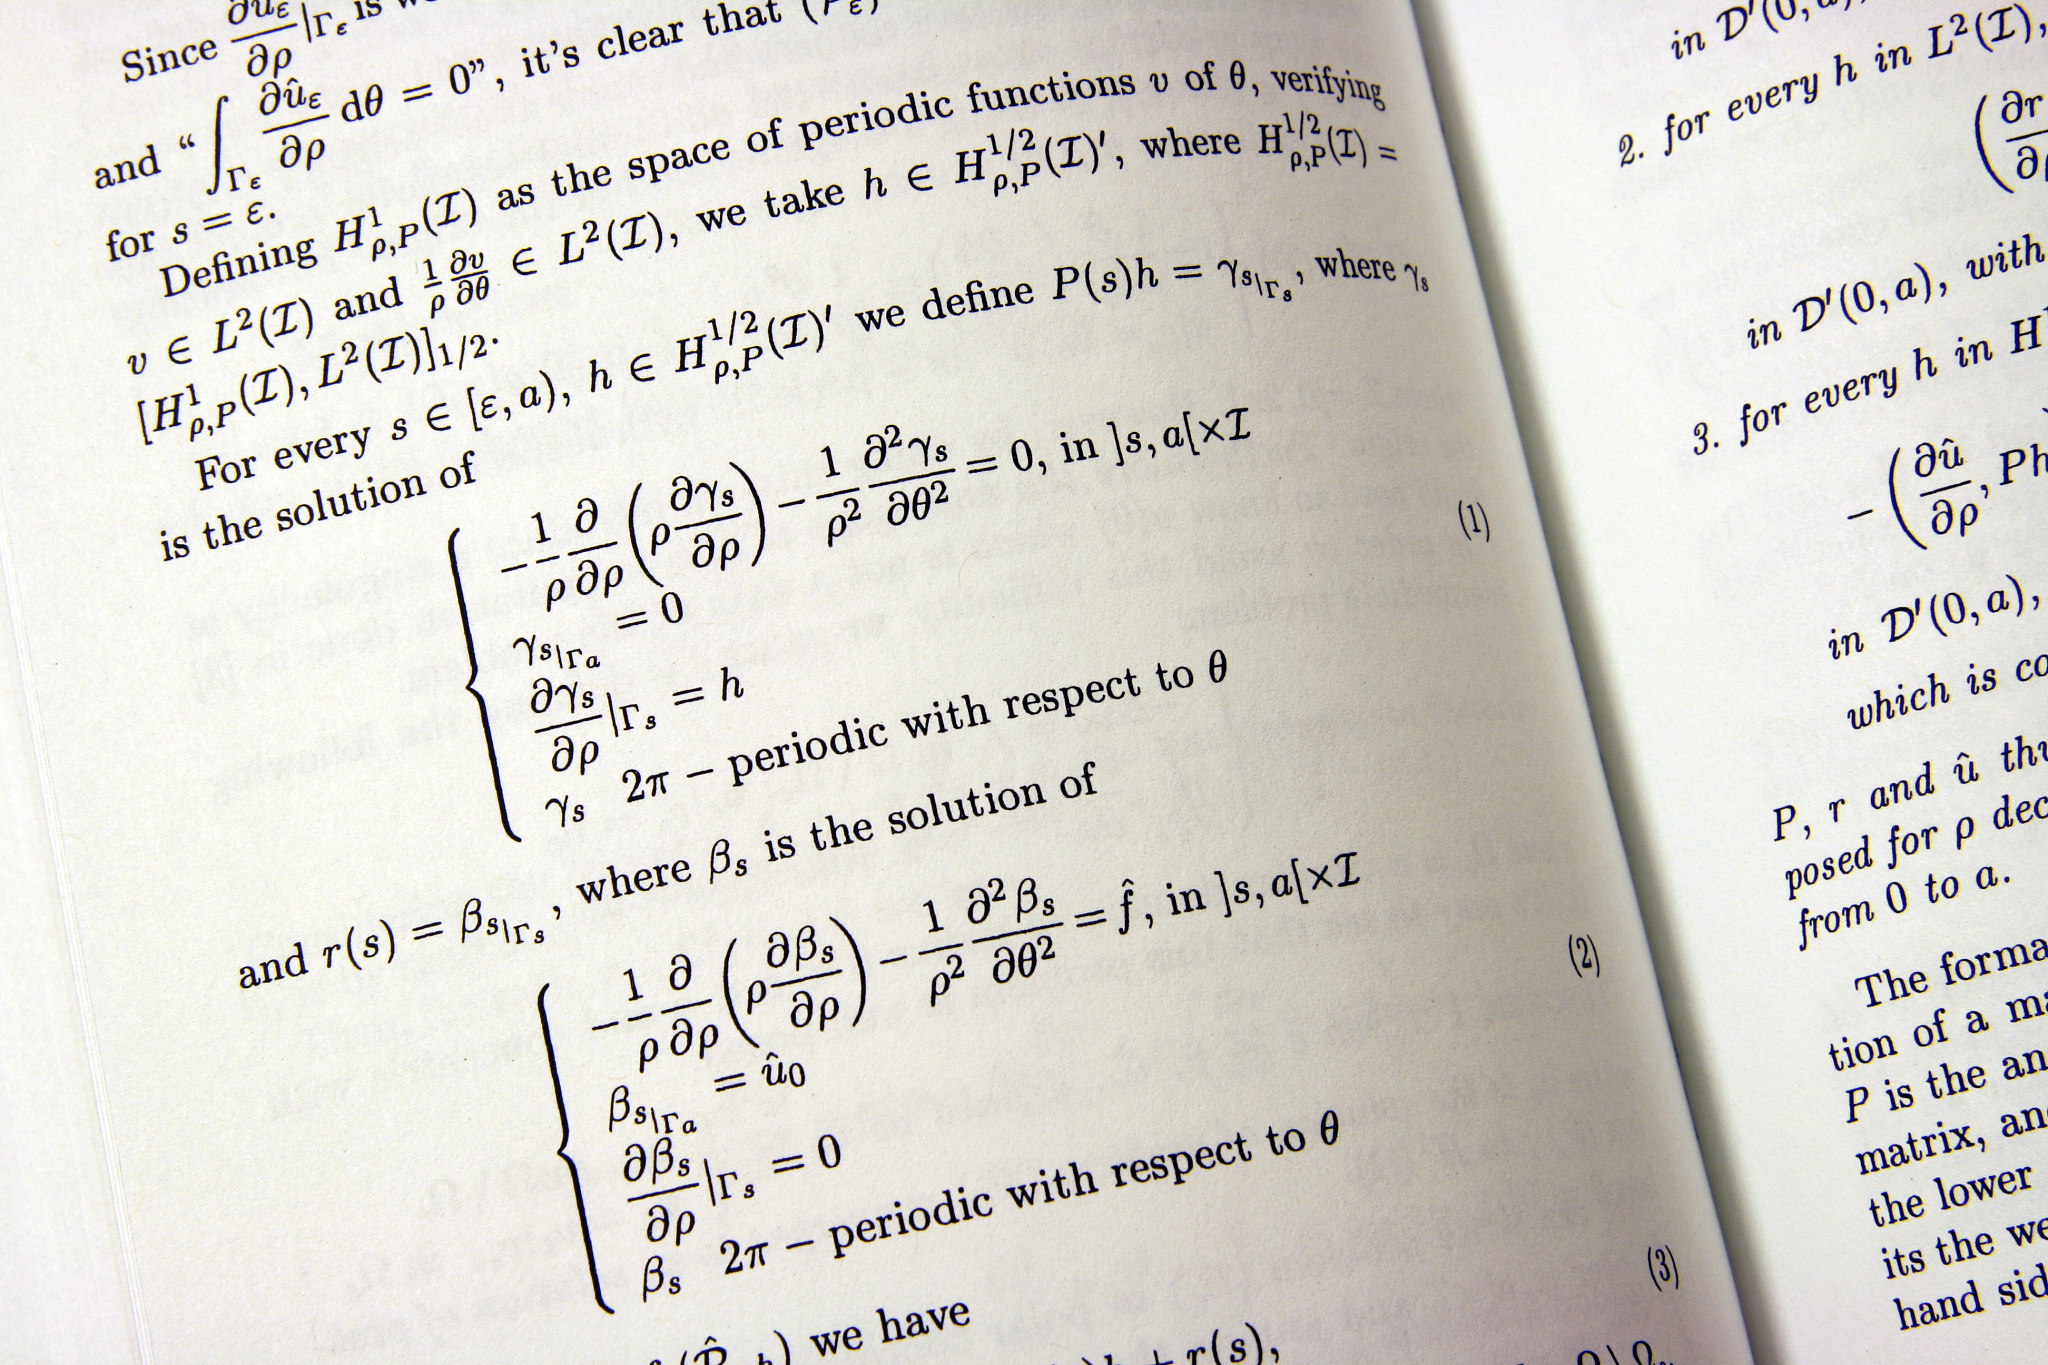 Since ∂ûε/∂ρ|Γε is
and “∫Γε ∂ûε/∂ρ dθ = 0”, it's clear that
for s = ε.
Defining H¹ρ,P(I) as the space of periodic functions v of θ, verifying
v ∈ L²(I) and 1/ρ ∂v/∂θ ∈ L²(I), we take h ∈ H^1/2 ρ,P(I)′, where H^1/2 ρ,P(I) =
[H¹ρ,P(I), L²(I)]1/2.
For every s ∈ [ε, a), h ∈ H^1/2 ρ,P(I)′ we define P(s)h = γs|Γs, where γs
is the solution of
−1/ρ ∂/∂ρ (ρ ∂γs/∂ρ) − 1/ρ² ∂²γs/∂θ² = 0, in ]s, a[×I
γs|Γa = 0
(1)
∂γs/∂ρ|Γs = h
γs 2π − periodic with respect to θ
and r(s) = βs|Γs, where βs is the solution of
−1/ρ ∂/∂ρ (ρ ∂βs/∂ρ) − 1/ρ² ∂²βs/∂θ² = f̂, in ]s, a[×I
βs|Γa = û0
(2)
∂βs/∂ρ|Γs = 0
βs 2π − periodic with respect to θ
we have
(3)
+ r(s),
in D′(0,
2. for every h in L²(I),
(∂r
in D′(0, a), with
3. for every h in H
− (∂û/∂ρ, Ph
in D′(0, a),
which is co
P, r and û thu
posed for ρ dec
from 0 to a.
The forma
tion of a ma
P is the an
matrix, an
the lower
its the we
hand sid